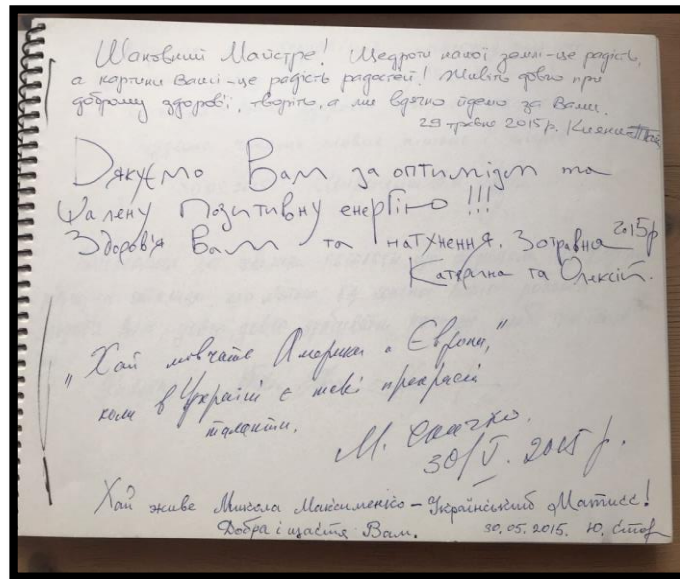 Шановний Майстре! Щедроти нашої землі - це радість,
а картини Ваші - це радість радостей! Живіть довго при
доброму здоров'ї, творіть, а ми вдячно йдемо за Вами.
29 травня 2015 р. Кияни
Дякуємо Вам за оптимізм та
шалену позитивну енергію !!!
Здоров'я Вам та натхнення. 30 травня 2015р
Катерина та Олексій.
"Хай мовчать Америка і Європи,"
коли в Україні є такі прекрасні
таланти.
М.
30/V. 2015 р.
Хай живе Микола Максименко - Український Матисс!
Добра і щастя Вам. 30.05.2015. Ю.